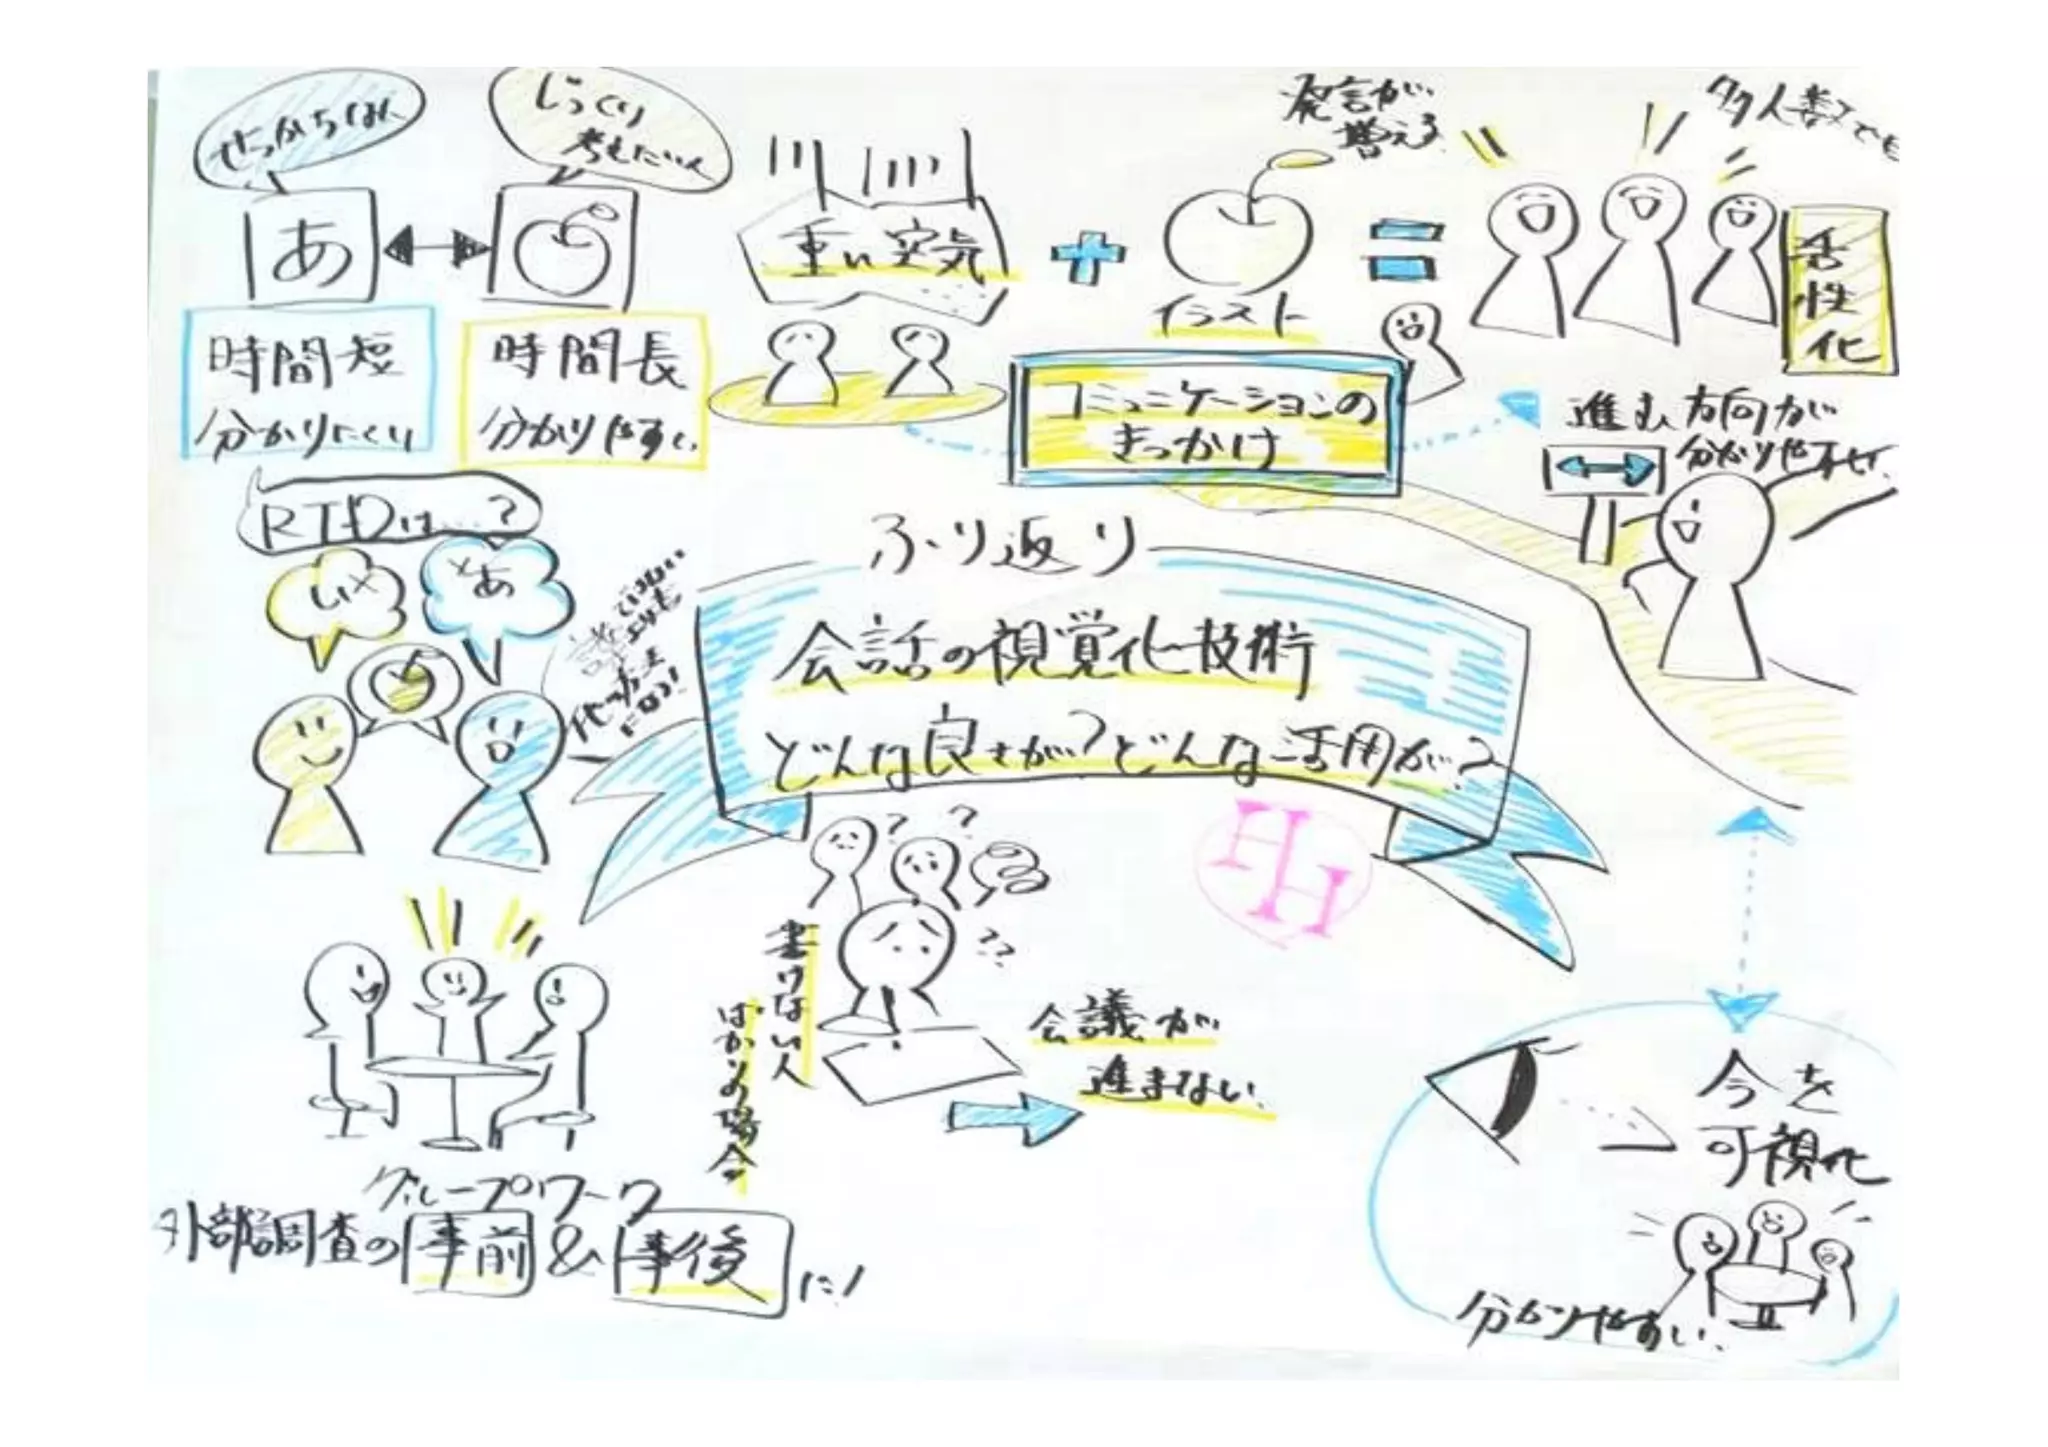 せっかちは
じっくり
考えたい人
あ
時間短
分かりにくい
時間長
分かりやすい
重い空気
イラスト
発言が
増える
多人数でも
活性化
コミュニケーションの
きっかけ
進む方向が
分かりやすい
は…?
い
あ
ふり返り
会話の視覚化技術
どんな良さが?どんな活用が?
HH
書けない人
ばかりの場合
?
?
??
会議が
進まない
グループワーク
外部調査の事前&事後に!
今を
可視化
分かりやすい